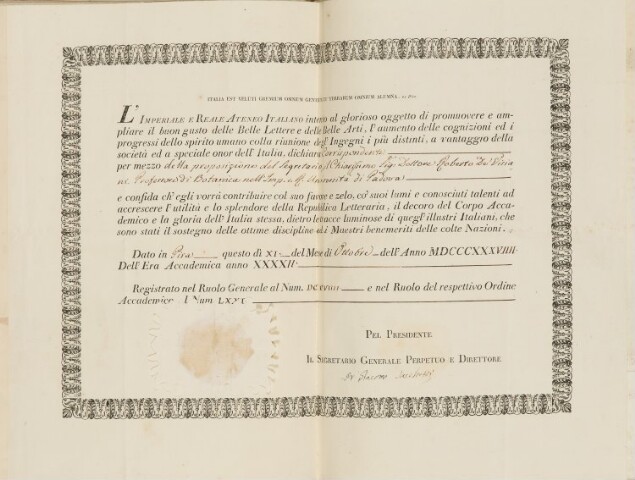 ITALIA EST VELUTI GREMIUM OMNIUM GENTIUM TERRARUM OMNIUM ALUMNA.
L'IMPERIALE E REALE ATENEO ITALIANO intento al glorioso oggetto di promuovere e am-
pliare il buon gusto delle Belle Lettere e delle Belle Arti, l'aumento delle cognizioni ed i
progressi dello spirito umano colla riunione degl'Ingegni i più distinti, a vantaggio della
società ed a speciale onor dell'Italia, dichiara Corrispondente
per mezzo della proposizione del Segretario, Il Chiarissimo Sig. Dottore Roberto De Visia
ni Professore di Botanica nell' Università di Padova
e confida ch'egli vorrà contribuire col suo favore e zelo, co' suoi lumi e conosciuti talenti ad
accrescere l'utilità e lo splendore della Repubblica Letteraria, il decoro del Corpo Acca-
demico e la gloria dell'Italia stessa, dietro le tracce luminose di quegl'illustri Italiani, che
sono stati il sostegno delle ottime discipline ed i Maestri benemeriti delle colte Nazioni.
Dato in Pisa questo dì XI del Mese di Ottobre dell'Anno MDCCCXXXVIIII
Dell'Era Accademica anno XXXXII
Registrato nel Ruolo Generale al Num. e nel Ruolo del respettivo Ordine
Accademico al Num. LXVI
PEL PRESIDENTE
IL SEGRETARIO GENERALE PERPETUO E DIRETTORE
Giacomo